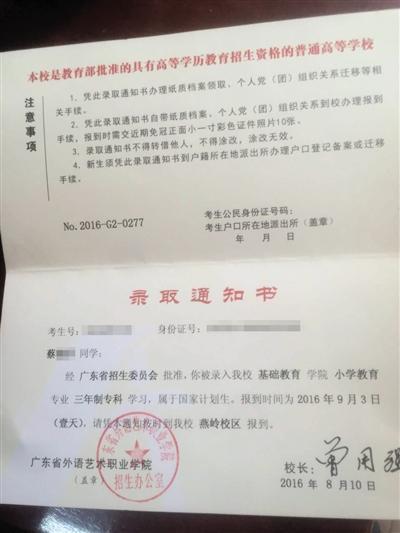 本校是教育部批准的具有高等学历教育招生资格的普通高等学校
注意事项
1、凭此录取通知书办理纸质档案领取、个人党（团）组织关系迁移等相
关手续。
2、凭此录取通知书自带纸质档案、个人党（团）组织关系到校办理报到
手续，报到时需交近期免冠正面小一寸彩色证件照片10张。
3、录取通知书不得转借他人，不得涂改，涂改无效。
4、新生须凭此录取通知书到户籍所在地派出所办理户口登记备案或迁移
手续。
No.2016-G2-0277
考生公民身份证号码：
考生户口所在地派出所（盖章）
年 月 日
录取通知书
考生号： 身份证号：
蔡 同学：
经 广东省招生委员会 批准，你被录入我校 基础教育 学院 小学教育
专业 三年制专科 学习，属于国家计划生。报到时间为 2016 年 9 月 3 日
（壹天），请凭本通知按时到我校 燕岭校区 报到。
广东省外语艺术职业学院
（盖章）
招生办公室
校长：
2016 年 8 月 10 日